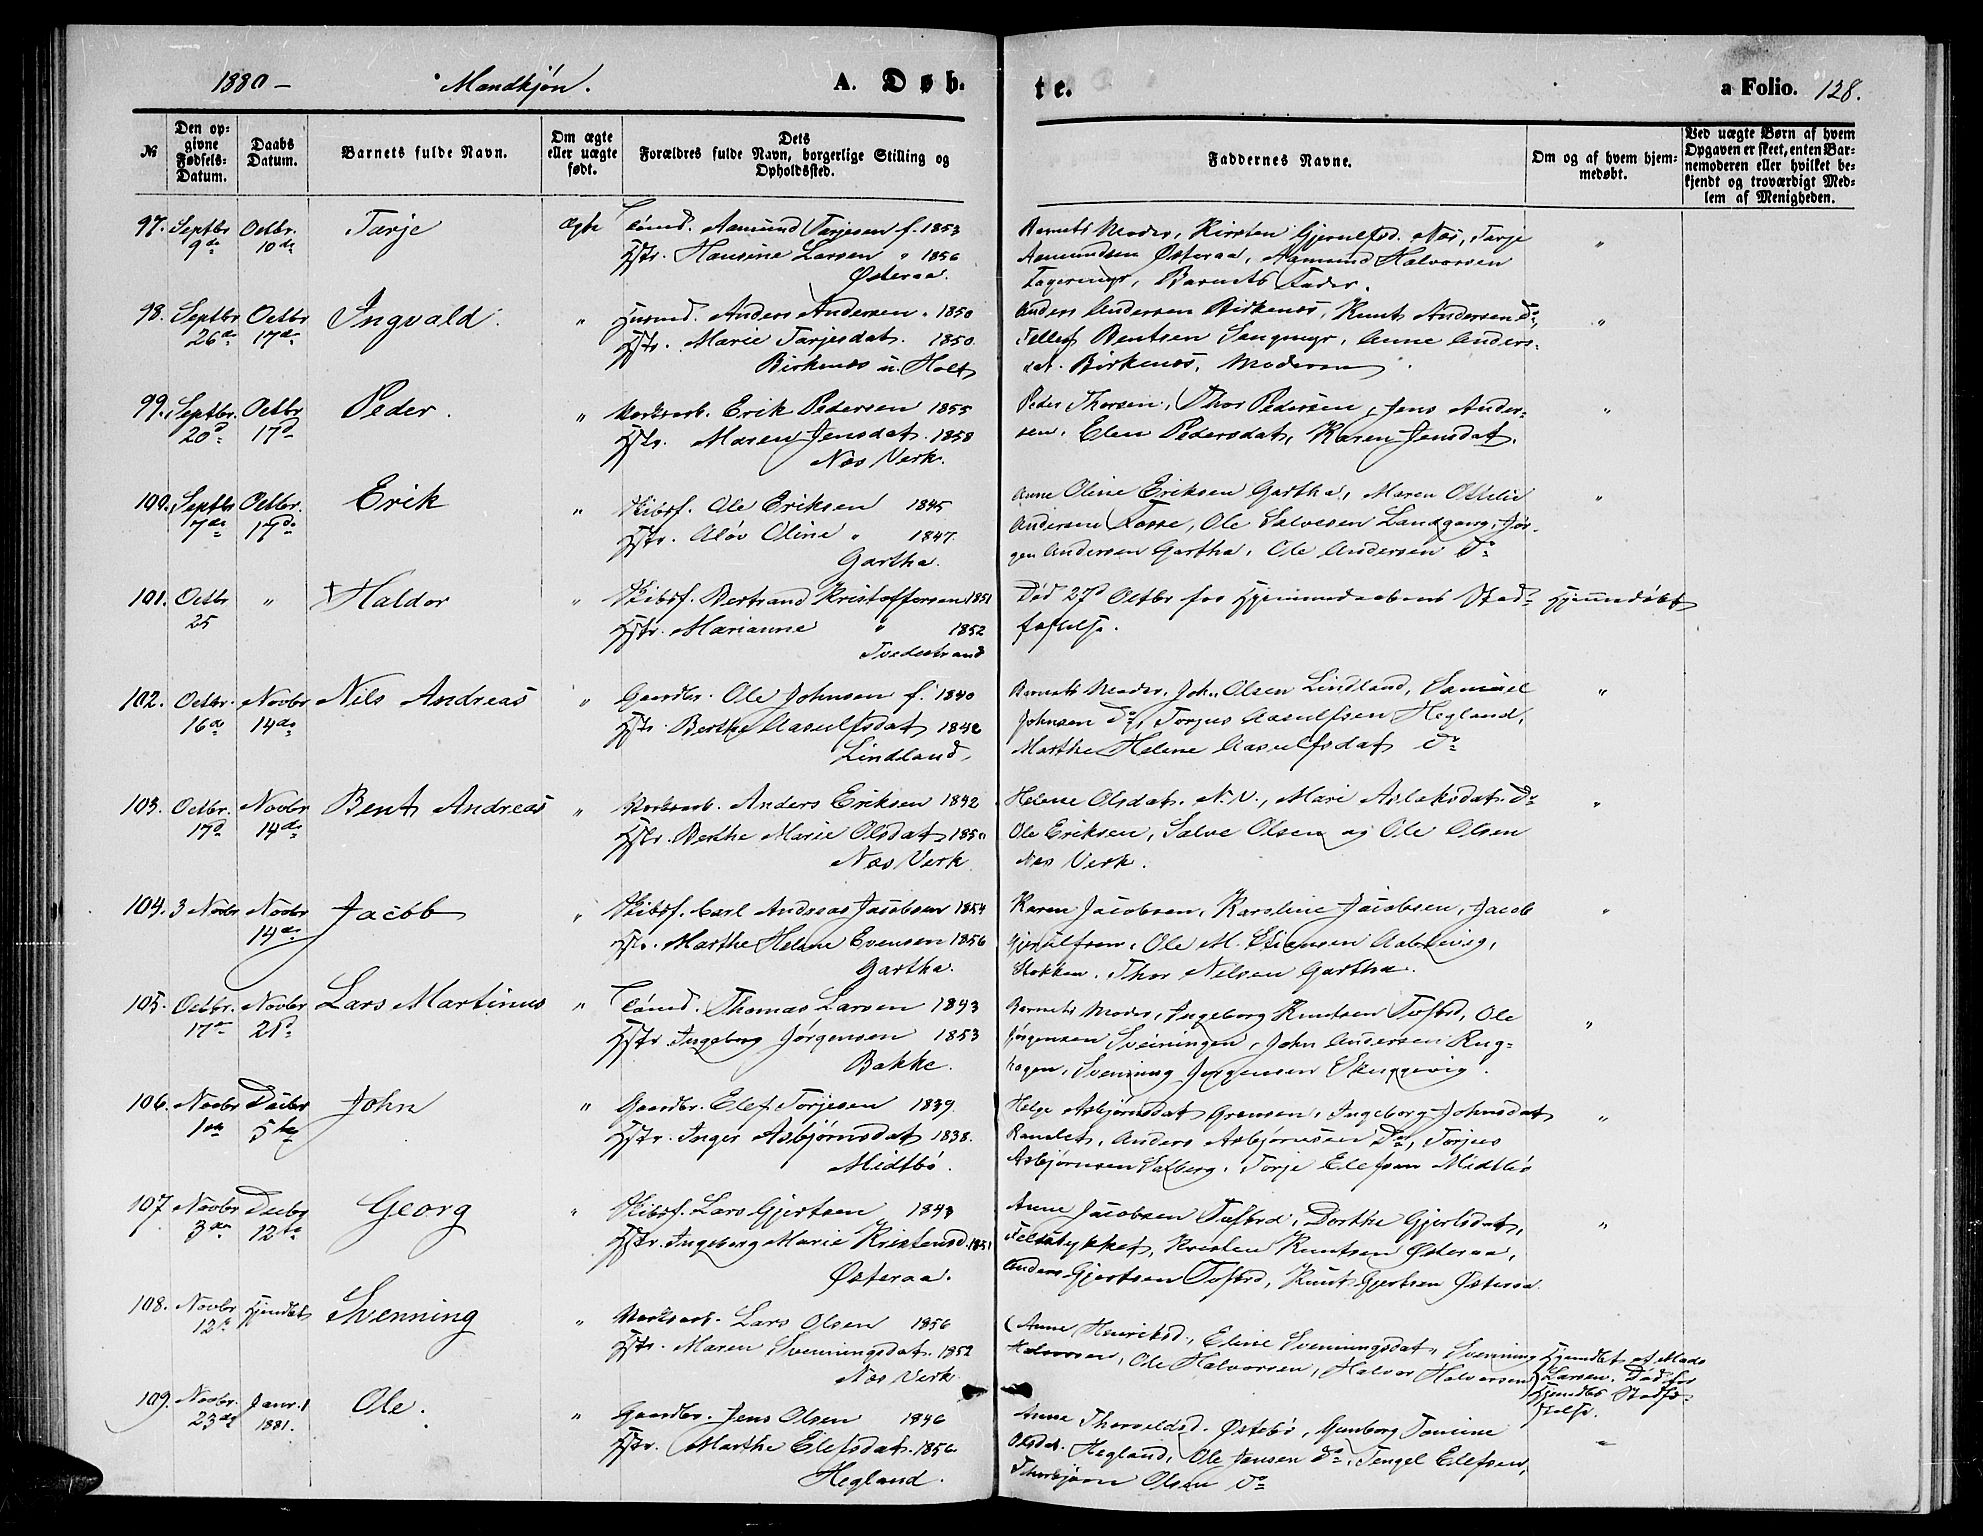 1880 - Mandkjøn. A. Døb-
te. a Folio. 128.
№
Den op-
givne
Fødsels-
Datum.
Daabs
Datum.
Barnets fulde Navn.
Om ægte
eller uægte
født.
Dets
Forældres fulde Navn, borgerlige Stilling og
Opholdssted.
Faddernes Navne.
Om og af hvem hjem-
medøbt.
Ved uægte Børn af hvem
Opgaven er skeet, enten Bar-
nemoderen eller hvilket be-
kjendt og troværdigt Med-
lem af Menigheden.
97. Septbr 9de Octbr. 10de Tarje Ægte Tømd. Aamund Tarjesen f. 1853
Hstr. Hansine Larsen " 1856
Østeraa.
Barnets Moder, Kirsten Gjeruldsd. Næs, Tarje
Aamundsen Østeraa, Aamund Halvorsen
Fagermyr, Barnets Fader. "
98. Septbr 26de Octbr 17de Ingvald. " Husmd. Anders Andersen " 1850
Hstr. Marie Tarjesdat. 1850.
Birkenes u. Holt
Anders Andersen Birkenes, Knut Andersen Do,
Tellef Bentsen Sangmyr, Anne Anders-
dat. Birkenes, Moderen. "
99. Septbr. 20d Octbr 17d Peder. " Verksarb. Erik Pedersen 1855
Hstr. Maren Jensdat. 1858
Næs Verk.
Peder Thorsen, Thor Pedersen, Jens Ander-
sen, Elen Pedersdat, Karen Jensdat. "
100. Septbr 7de Octbr. 17de Erik " Skibsf. Ole Eriksen 1845
Hstr. Aløv Oline " 1847.
Gartha.
Anne Oline Eriksen Gartha, Maren Ottilie
Andersene Fosse, Ole Salvesen Landgang, Jør-
gen Andersen Gartha, Ole Andersen Do "
101. Octbr 25 " + Haldor " Skibsf. Bertrand Kristoffersen 1851
Hstr. Marianne " 1852
Tvedestrand
Død 27d Octbr før Hjemmedaabens Stad-
fæstelse. Hjemmedøbt
102. Octbr. 16de Novbr 14de Nils Andreas " Gaardbr. Ole Johnsen f. 1840
Hstr Berthe Aasulfsdat 1842
Lindland,
Barnets Moder, Joh. Olsen Lindland, Samuel
Johnsen Do, Torjus Aasulfsen Hegland,
Marthe Helene Aasulfsdat Do "
103. Octbr. 17d Novbr 14de Bent Andreas " Verksarb. Anders Eriksen 1842
Hstr. Berthe Marie Olsdat 1850
Næs Verk
Helene Olsdat. N. V., Mari Aslaksdat. Do
Ole Eriksen, Salve Olsen og Ole Olsen
Næs Verk. "
104. 3 Novbr Novbr 14de Jacob " Skibsf. Carl Andreas Jacobsen 1854
Hstr. Marthe Helene Evensen 1856
Gartha.
Karen Jacobsen, Karoline Jacobsen, Jacob
Gjerulfsen, Ole M.
Stokken, Thor Nilsen Gartha. "
105. Octbr. 17de Novbr 21d Lars Martinus " Tømd. Thomas Larsen 1843
Hstr. Ingeborg Jørgensen 1853
Bakke.
Barnets Moder, Ingeborg Knutsen Tofsrd, Ole
Jørgensen Sveiningen, John Andersen Rug-
hagen, Svenning Jørgensen Skuggevig. "
106. Novbr 1ste Decbr 5te John " Gaardbr. Elef Torjesen 1839.
Hstr. Inger Asbjørnsdat 1838.
Midtbø.
Helge Asbjørnsdat Grønsen, Ingeborg Johnsdat
Ramlet, Anders Asbjørnsen Do, Torjus
Asbjørnsen Salberg, Torje Elefsen Midtbø "
107. Novbr 3die Decbr 12te Georg " Skibsf. Lars Gjertsen 1843
Hstr. Ingeborg Marie Kristensd. 1851
Østeraa.
Anne Jacobsen Tofsrd, Dorthe Gjertsdat,
Feltstykket, Kristen Knutsen Østeraa,
Anders Gjertsen Tofsrd, Knut Gjertsen Østeraa "
108. Novbr 12te Hjemdbt Svenning " Verksarb. Lars Olsen 1856
Hstr. Maren Svenningsdat. 1852
Næs Verk
(Anne Henriksd., Eline Svenningsdat, Svenning
Halvorsen, Ole Halvorsen, Halvor Halvorsen) Hjemdbt af Mads
Larsen. Død før
Hjemdbs Stadfæ-
stelse.
109. Novbr. 23de Janr. 1 1881. Ole. " Gaardbr. Jens Olsen 1846
Hstr. Marthe Elefsdat. 1856
Hegland.
Anne Thorvaldsd. Østebø, Gunborg Tomine
Olsdat. Hegland, Ole Jensen Do, Tengel Elefsen,
Thorbjørn Olsen Do "